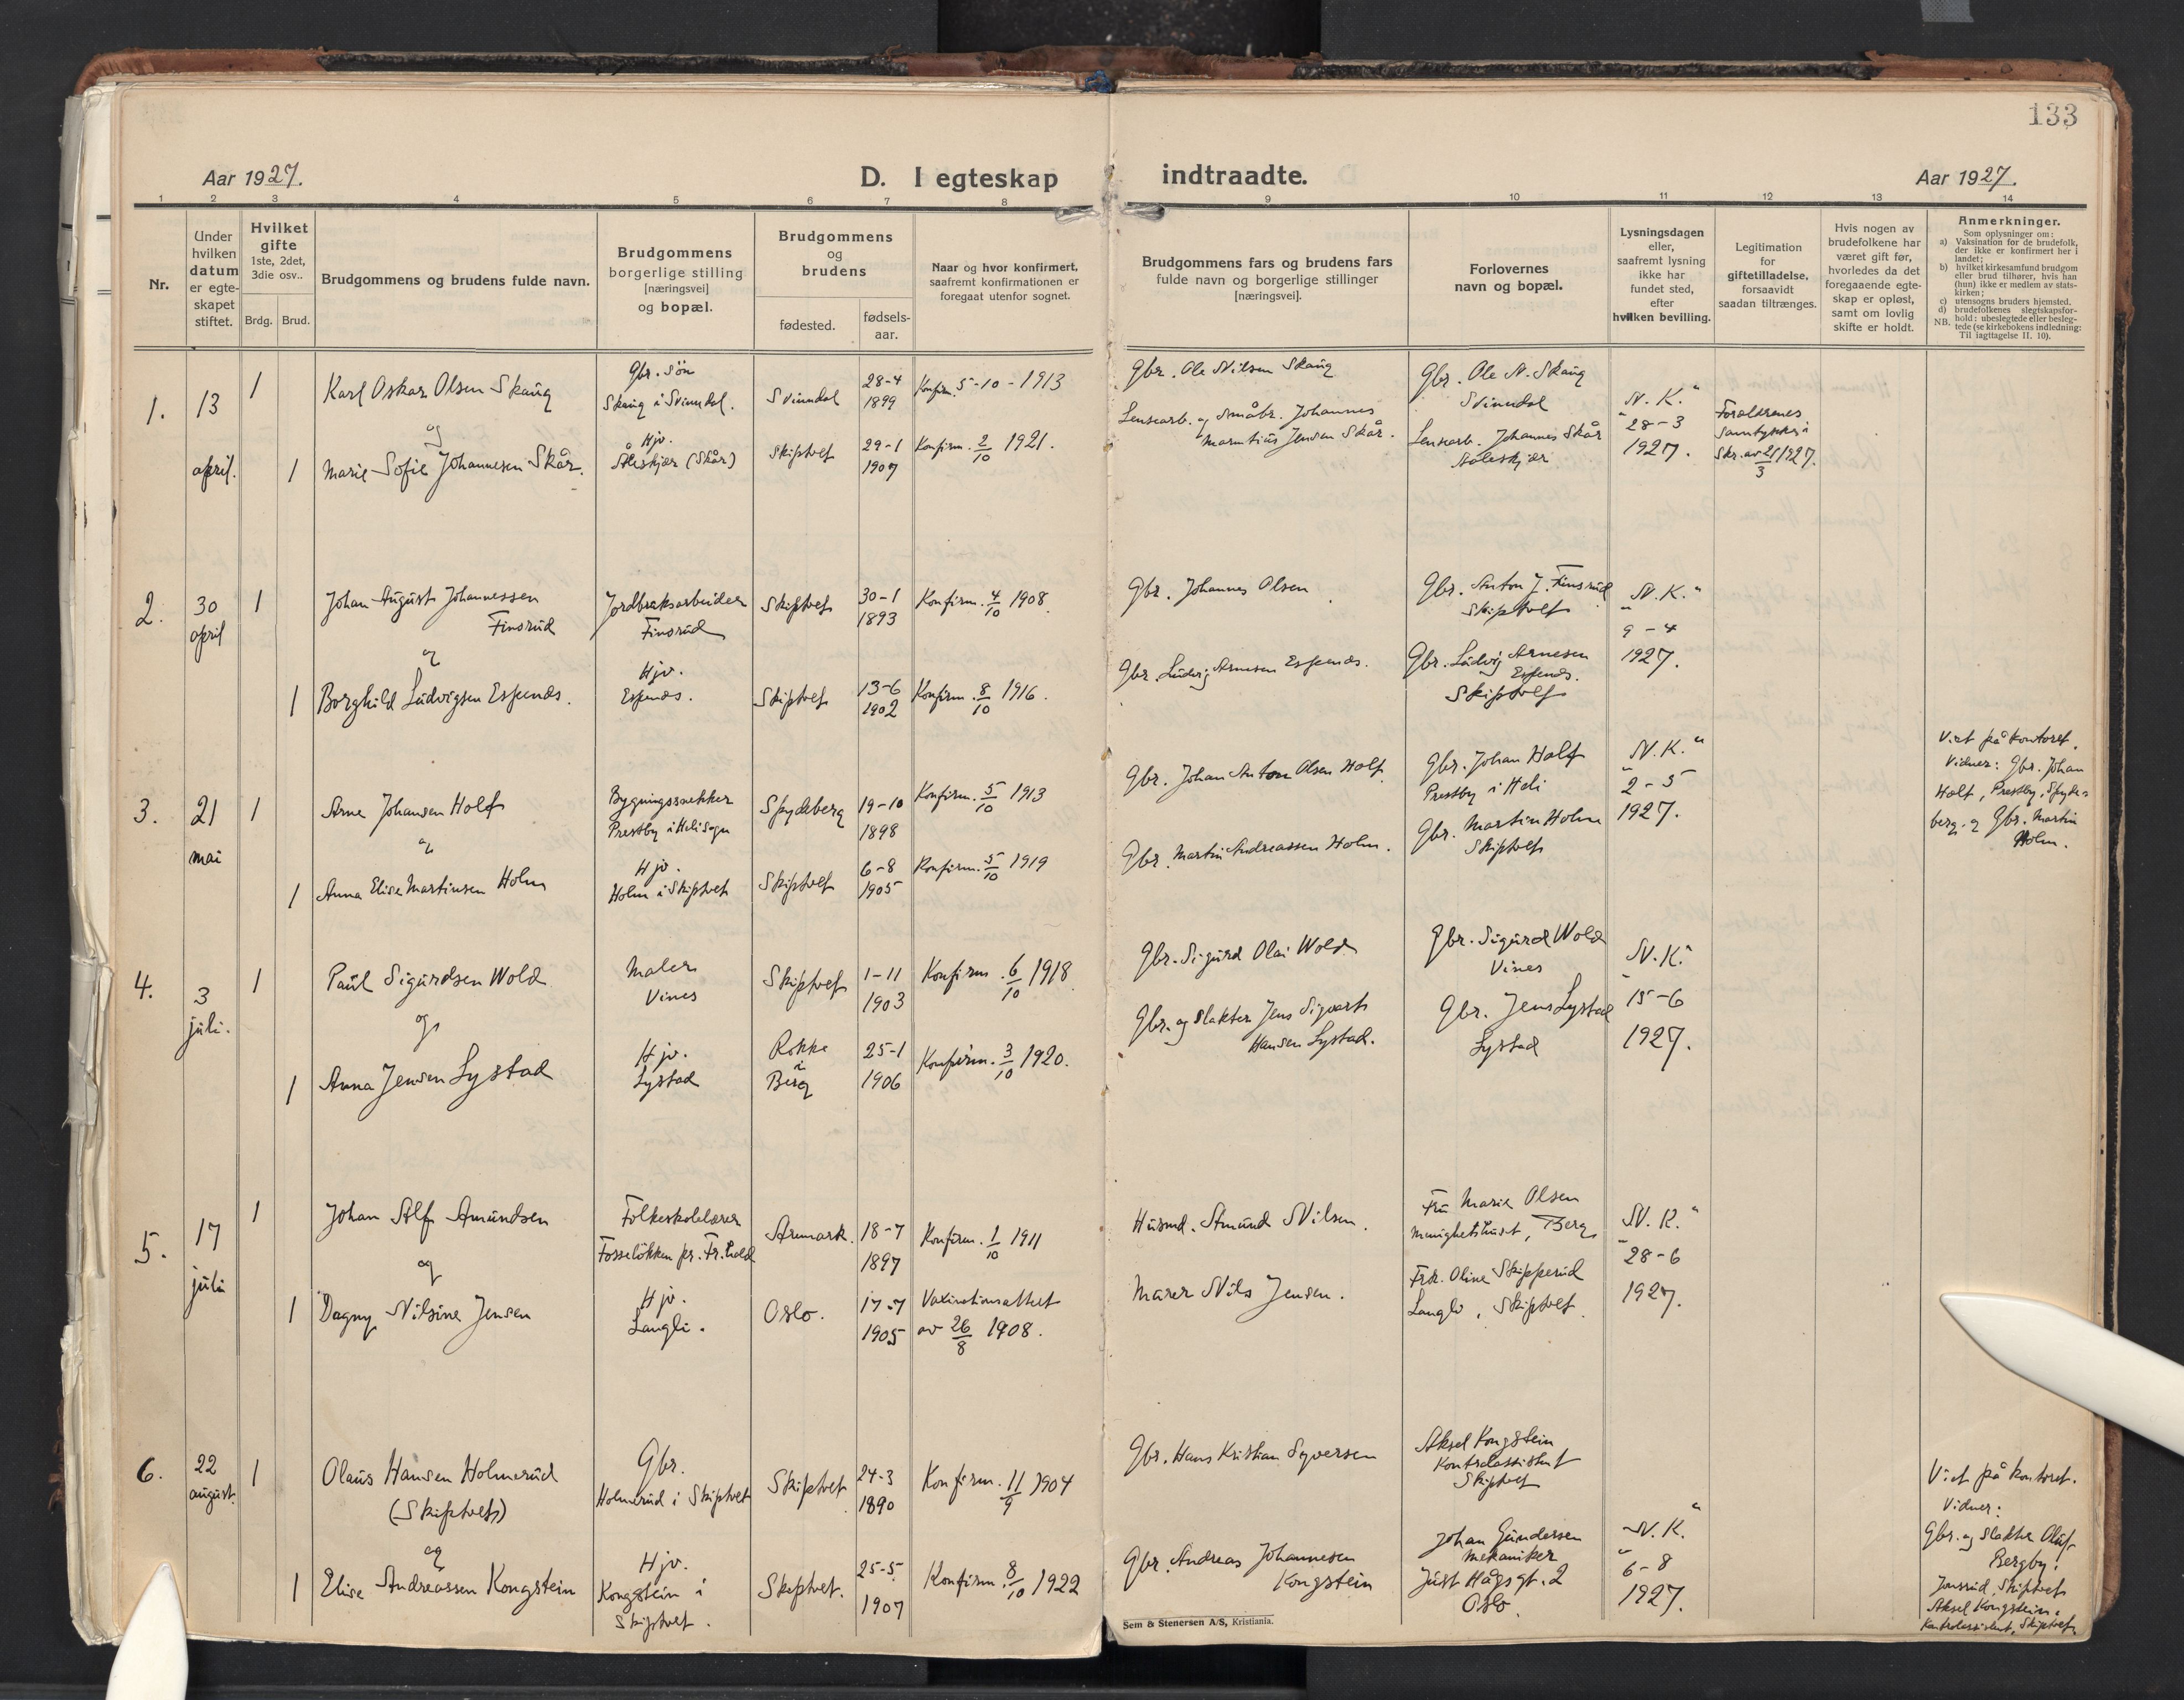 133
Aar 1927.
D. I egteskap indtraadte.
Aar 1927.
1 2 3 4 5 6 7 8 9 10 11 12 13 14
Nr.
Under
hvilken
datum
er egte-
skapet
stiftet.
Hvilket
gifte
1ste, 2det,
3die osv..
Brdg. Brud.
Brudgommens og brudens fulde navn.
Brudgommens
borgerlige stilling
[næringsvei]
og bopæl.
Brudgommens
og
brudens
fødested.
fødsels-
aar.
Naar og hvor konfirmert,
saafremt konfirmationen er
foregaat utenfor sognet.
Brudgommens fars og brudens fars
fulde navn og borgerlige stillinger
[næringsvei].
Forlovernes
navn og bopæl.
Lysningsdagen
eller,
saafremt lysning
ikke har
fundet sted,
efter
hvilken bevilling.
Legitimation
for
giftetilladelse,
forsaavidt
saadan tiltrænges.
Hvis nogen av
brudefolkene har
været gift før,
hvorledes da det
foregaaende egte-
skap er opløst,
samt om lovlig
skifte er holdt.
Anmerkninger.
Som oplysninger om:
a) Vaksination for de brudefolk,
der ikke er konfirmert her i
landet;
b) hvilket kirkesamfund brudgom
eller brud tilhører, hvis han
(hun) ikke er medlem av stats-
kirken;
c) utensogns bruders hjemsted.
d) brudefolkenes slegtskapsfor-
hold: ubeslegtede eller besleg-
NB. tede (se kirkebokens indledning:
Til iagttagelse II. 10).
1.
13
april.
1
Karl Oskar Olsen Skaug
og
1
Marie Sofie Johannesen Skår.
Gbr. søn
Skaug i Svinndal.
Hjv.
Åleskjær (Skår)
Svinndal
Skiptvet
28-4
1899
29-1
1907
Konfirm. 5-10-1913
Konfirm. 2/10 1921.
Gbr. Ole Nilsen Skaug
Lensearb. og småbr. Johannes
Marntius Jensen Skår.
Gbr. Ole N. Skaug
Svinndal
Lensearb. Johannes Skår
„N. K.“
28-3
1927.
Forældrenes
samtykke i
skr. av 21/3 1927.
2.
30
april
1
Johan August Johannessen
Finsrud
og
1
Borghild Ludvigsen Espenæs.
Jordbruksarbeider
Finsrud
Hjv.
Espenæs.
Skiptvet
Skiptvet
30-1
1893
13-6
1902
Konfirm. 4/10 1908.
Konfirm. 8/10 1916.
Gbr. Johannes Olsen
Gbr. Ludvig Arnesen Espenæs.
Gbr. Anton J. Finsrud
Skiptvet
Gbr. Ludvig Arnesen
Espenæs.
Skiptvet
„N. K.“
9-4
1927.
3.
21
mai
1
Arne Johansen Holt
og
1
Anna Elise Martinsen Holm
Bygningssnekker
Prestby i Heli sogn
Hjv.
Holm i Skiptvet
Spydeberg
Skiptvet
19-10
1898
6-8
1905
Konfirm. 5/10 1913
Konfirm. 5/10 1919
Gbr. Johan Anton Olsen Holt
Gbr. Martin Andreassen Holm.
Gbr. Johan Holt
Prestby i Heli
Gbr. Martin Holm
Skiptvet
„N. K.“
2-5
1927.
Viet på kontoret.
Vidner: Gbr. Johan
Holt, Prestby, Spyde-
berg. og Gbr. Martin
Holm.
4.
3
juli.
1
Paul Sigurdsen Wold
og
1
Anna Jensen Lystad
Maler
Vines
Hjv.
Lystad
Skiptvet
Rokke
i
Berg
1-11
1903
25-1
1906
Konfirm. 6/10 1918.
Konfirm. 3/10 1920.
Gbr. Sigurd Olai Wold
Gbr. og slakter Jens Sigvart
Hansen Lystad.
Gbr. Sigurd Wold
Vines
Gbr. Jens Lystad
Lystad
„N. K.“
15-6
1927.
5.
17
juli
1
Johan Alf Amundsen
og
1
Dagny Nilsine Jensen
Folkeskolelærer
Fosseløkken pr. Fr.hald
Hjv.
Langli.
Aremark.
Oslo.
18-7
1897
17-7
1905
Konfirm. 1/10 1911
Vaxinationsattest
av 26/8 1908.
Husmd. Amund Nilsen.
Murer Nils Jensen.
Fru Marie Olsen
Menighetshuset, Berg
Frk. Oline Skipperud
Langli, Skiptvet.
„N. K.“
28-6
1927.
6.
22
august.
1
Olaus Hansen Holmerud
(Skiptvet)
og
1
Elise Andreassen Kongstein
Gbr.
Holmerud i Skiptvet
Hjv.
Kongstein i
Skiptvet.
Skiptvet
Skiptvet.
24-3
1890
25-5
1907
Konfirm. 11/9 1904
Konfirm. 8/10 1922
Gbr. Hans Kristian Syversen
Gbr. Andreas Johannesen
Kongstein
Aksel Kongstein
Kontrolassistent
Skiptvet
Johan Gundersen
mekaniker
Just Hågs gt. 2
Oslo.
„N. K.“
6-8
1927.
Viet på kontoret.
Vidner:
Gbr. og slakter Oluf
Bergby,
Jonsrud, Skiptvet
Aksel Kongstein,
Kontrolassistent, Skiptvet.
Sem & Stenersen A/S, Kristiania.